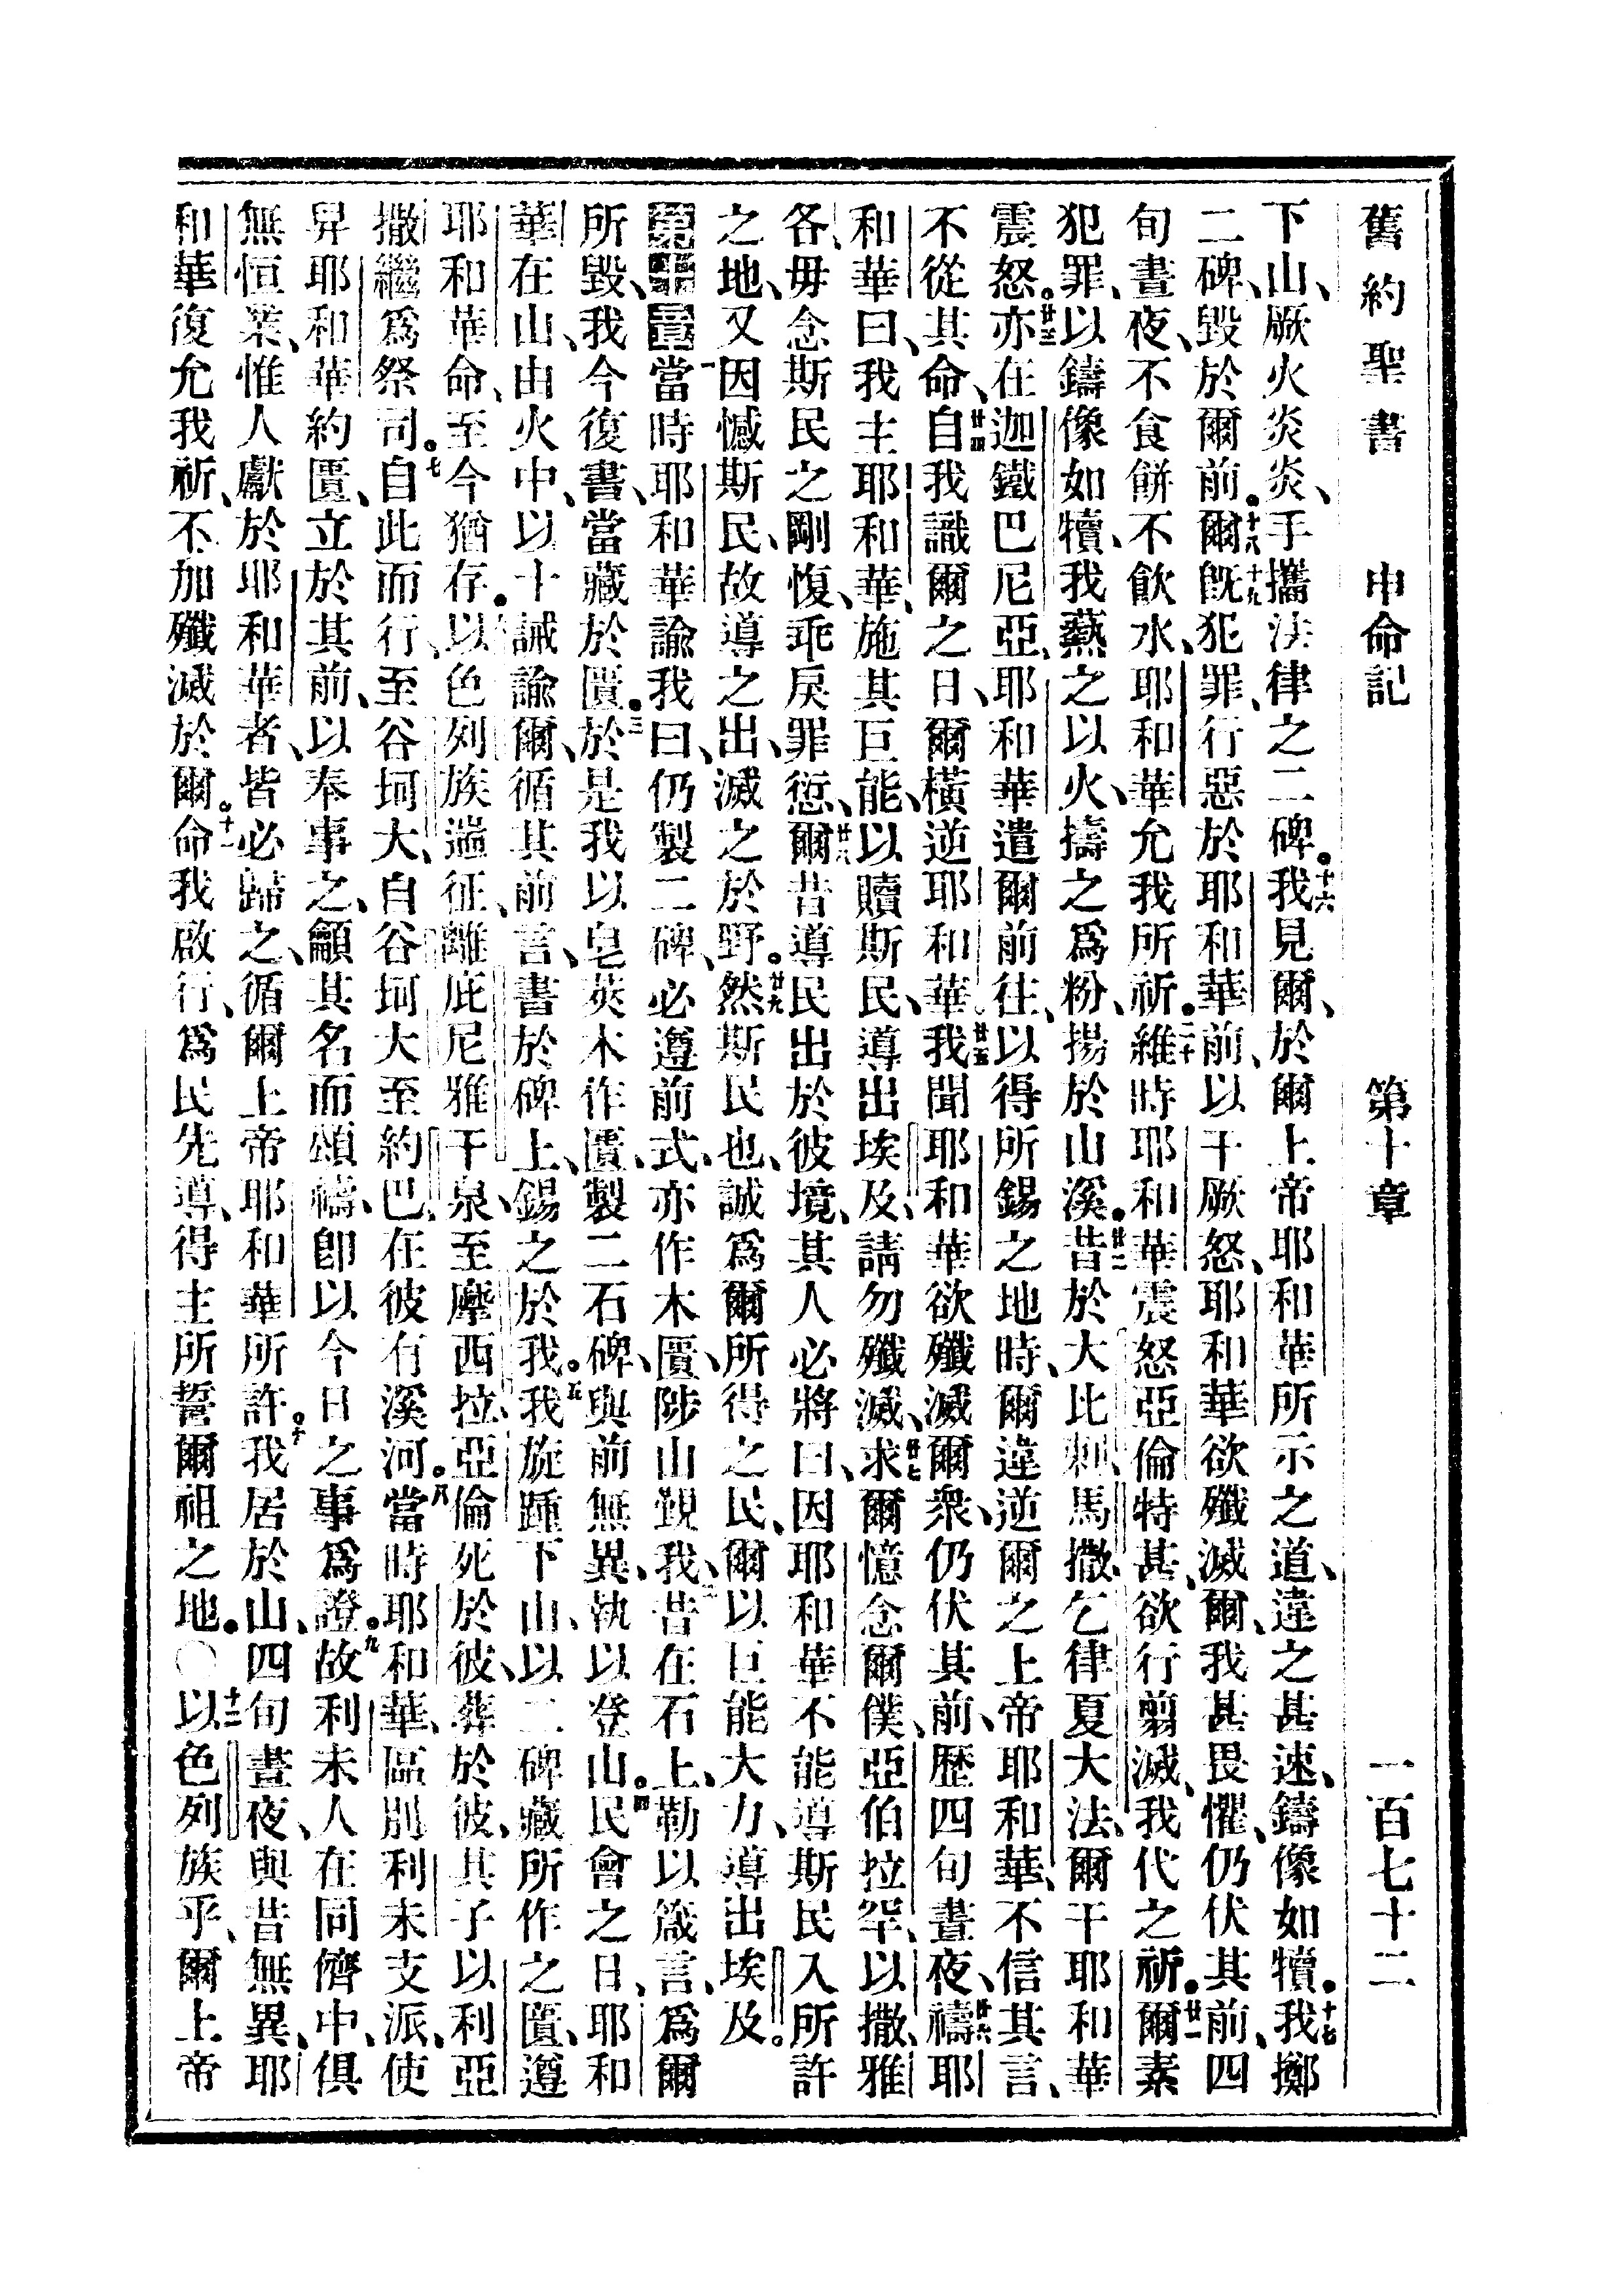 舊約聖書 申命記 第十章 一百七十二
下山、厥火炎炎、手攜法律之二碑。十六我見爾、於爾上帝耶和華所示之道、違之甚速、鑄像如犢。十七我擲
二碑、毀於爾前。十八爾旣十九犯罪、行惡於耶和華前、以干厥怒、耶和華欲殲滅爾、我甚畏懼、仍伏其前、四
旬晝夜、不食餅不飮水、耶和華允我所祈。二十維時耶和華震怒亞倫特甚、欲行翦滅、我代之祈。廿一爾素
犯罪、以鑄像如犢、我爇之以火、擣之爲粉、揚於山溪。廿二昔於大比喇、馬撒、乞律夏大法、爾干耶和華
震怒。廿三亦在迦鐵巴尼亞、耶和華遣爾前往、以得所錫之地時、爾違逆爾之上帝耶和華、不信其言、
不從其命、廿四自我識爾之日、爾橫逆耶和華。廿五我聞耶和華欲殲滅爾衆、仍伏其前、歷四旬晝夜、廿六禱耶
和華曰、我主耶和華、施其巨能、以贖斯民、導出埃及、請勿殲滅、廿七求爾憶念爾僕、亞伯拉罕、以撒、雅
各、毋念斯民之剛愎、乖戾罪愆、廿八爾昔導民出於彼境、其人必將曰、因耶和華不能導斯民入所許
之地、又因憾斯民、故導之出、滅之於野。廿九然斯民也、誠爲爾所得之民、爾以巨能大力、導出埃及。
第十章一當時耶和華諭我曰、仍製二碑、必遵前式、亦作木匱、陟山覲我、二昔在石上、勒以箴言、爲爾
所毀、我今復書、當藏於匱。三於是我以皂莢木作匱、製二石碑、與前無異、執以登山。四民會之日、耶和
華在山、由火中、以十誡諭爾、循其前言、書於碑上、錫之於我。五我旋踵下山、以二碑藏所作之匱、遵
耶和華命、至今猶存。以色列族遄征、離庇尼雅干泉、至摩西拉、亞倫死於彼、葬於彼、其子以利亞
撒繼爲祭司。七自此而行、至谷坷大、自谷坷大至約巴、在彼有溪河。八當時耶和華、區別利未支派、使
舁耶和華約匱、立於其前、以奉事之、籲其名而頌禱、卽以今日之事爲證。九故利未人在同儕中、俱
無恒業、惟人獻於耶和華者、皆必歸之、循爾上帝耶和華所許。十我居於山、四旬晝夜、與昔無異、耶
和華復允我祈、不加殲滅於爾。十一命我啟行、爲民先導、得主所誓爾祖之地。〇十二以色列族乎、爾上帝